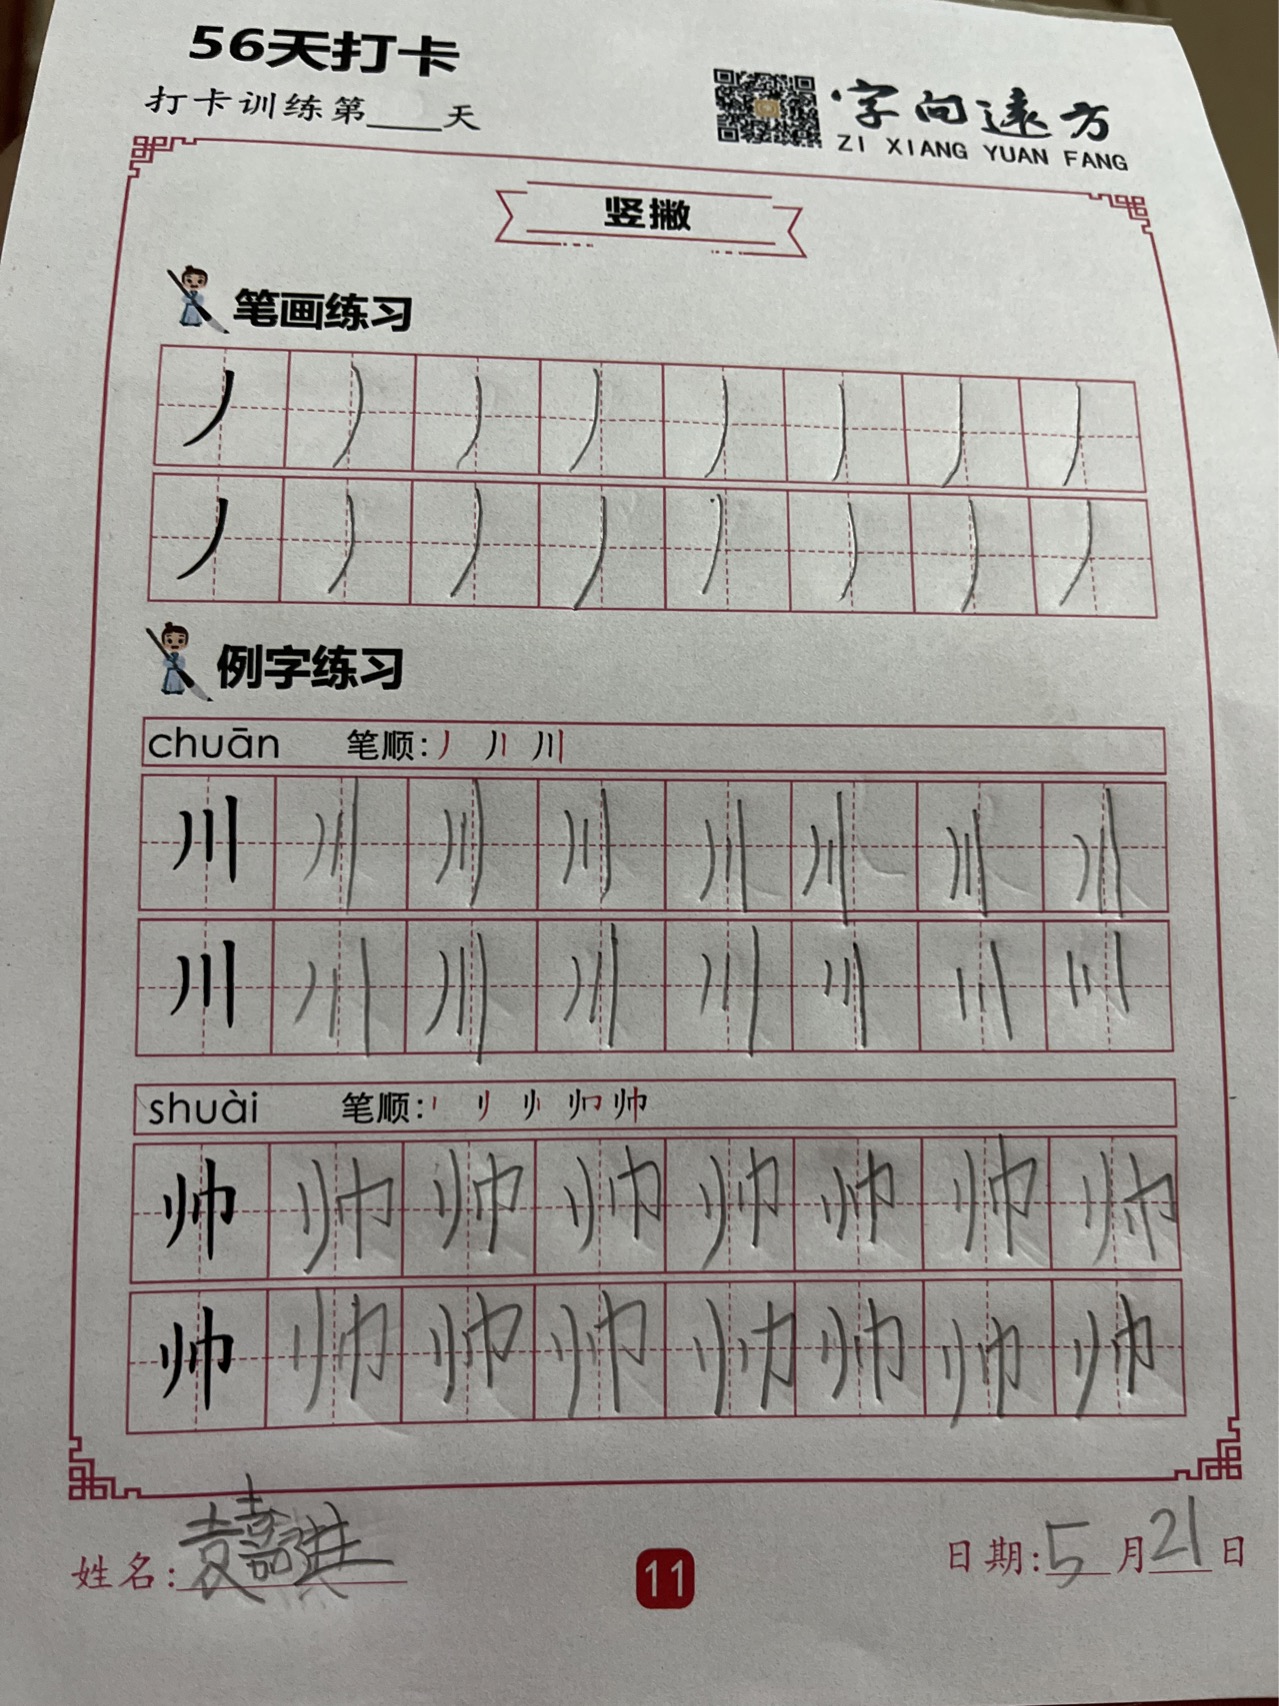 56天打卡
打卡训练第____天
字向远方
ZI XIANG YUAN FANG
竖撇
笔画练习
丿 丿 丿 丿 丿 丿 丿 丿
丿 丿 丿 丿 丿 丿 丿 丿
例字练习
chuān 笔顺: 丿 丿丨 川
川 川 川 川 川 川 川 川
川 川 川 川 川 川 川 川
shuài 笔顺: 丨 刂 帅
帅 帅 帅 帅 帅 帅 帅 帅
帅 帅 帅 帅 帅 帅 帅 帅
姓名: 袁
日期: 5月21日
11